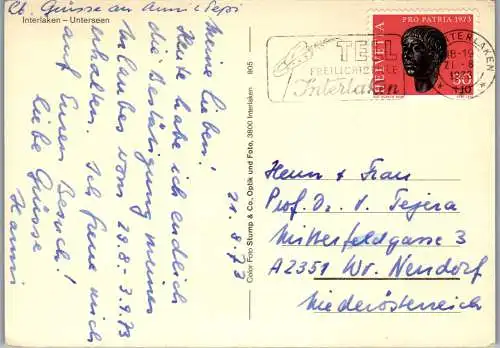 Lb. Grüsse an Anni u Sepi
Interlaken – Unterseen
21.8.73
Meine Lieben!
Heute habe ich endlich
die Bestätigung meines
Urlaubes vom 28.8.- 3.9.73
erhalten. Ich freue mich
auf Euren Besuch!
Liebe Grüsse
Hanni
805
Color Foto Stump & Co, Optik und Foto, 3800 Interlaken
TELL
FREILICHTSPIELE
Interlaken
INTERLAKEN
18-19
21.-8
HELVETIA
PRO PATRIA 1973
30
+10
Herrn & Frau
Prof. Dr. V. Tejera
Mitterfeldgasse 3
A2351 Wr. Neudorf
Niederösterreich